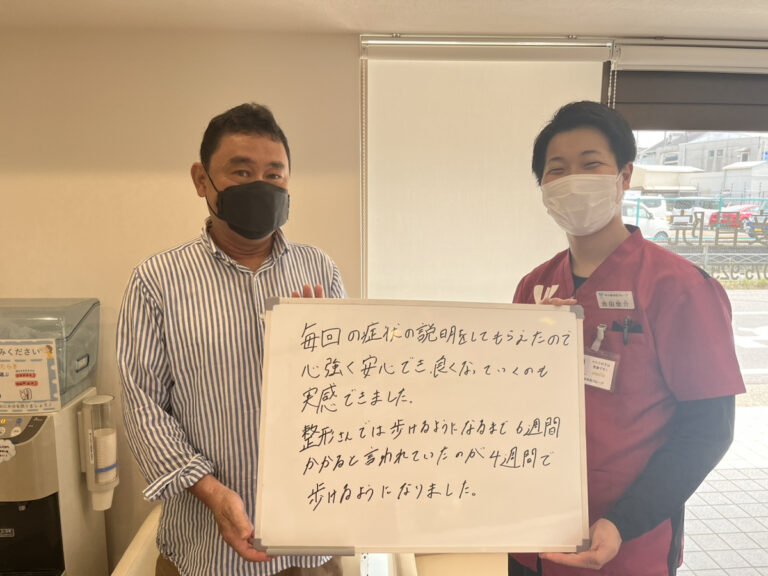 毎回の症状の説明をしてもらえたので
心強く安心でき、良くなっていくのも
実感できました。
整形さんでは歩けるようになるまで6週間
かかると言われていたのが4週間で
歩けるようになりました。
みください